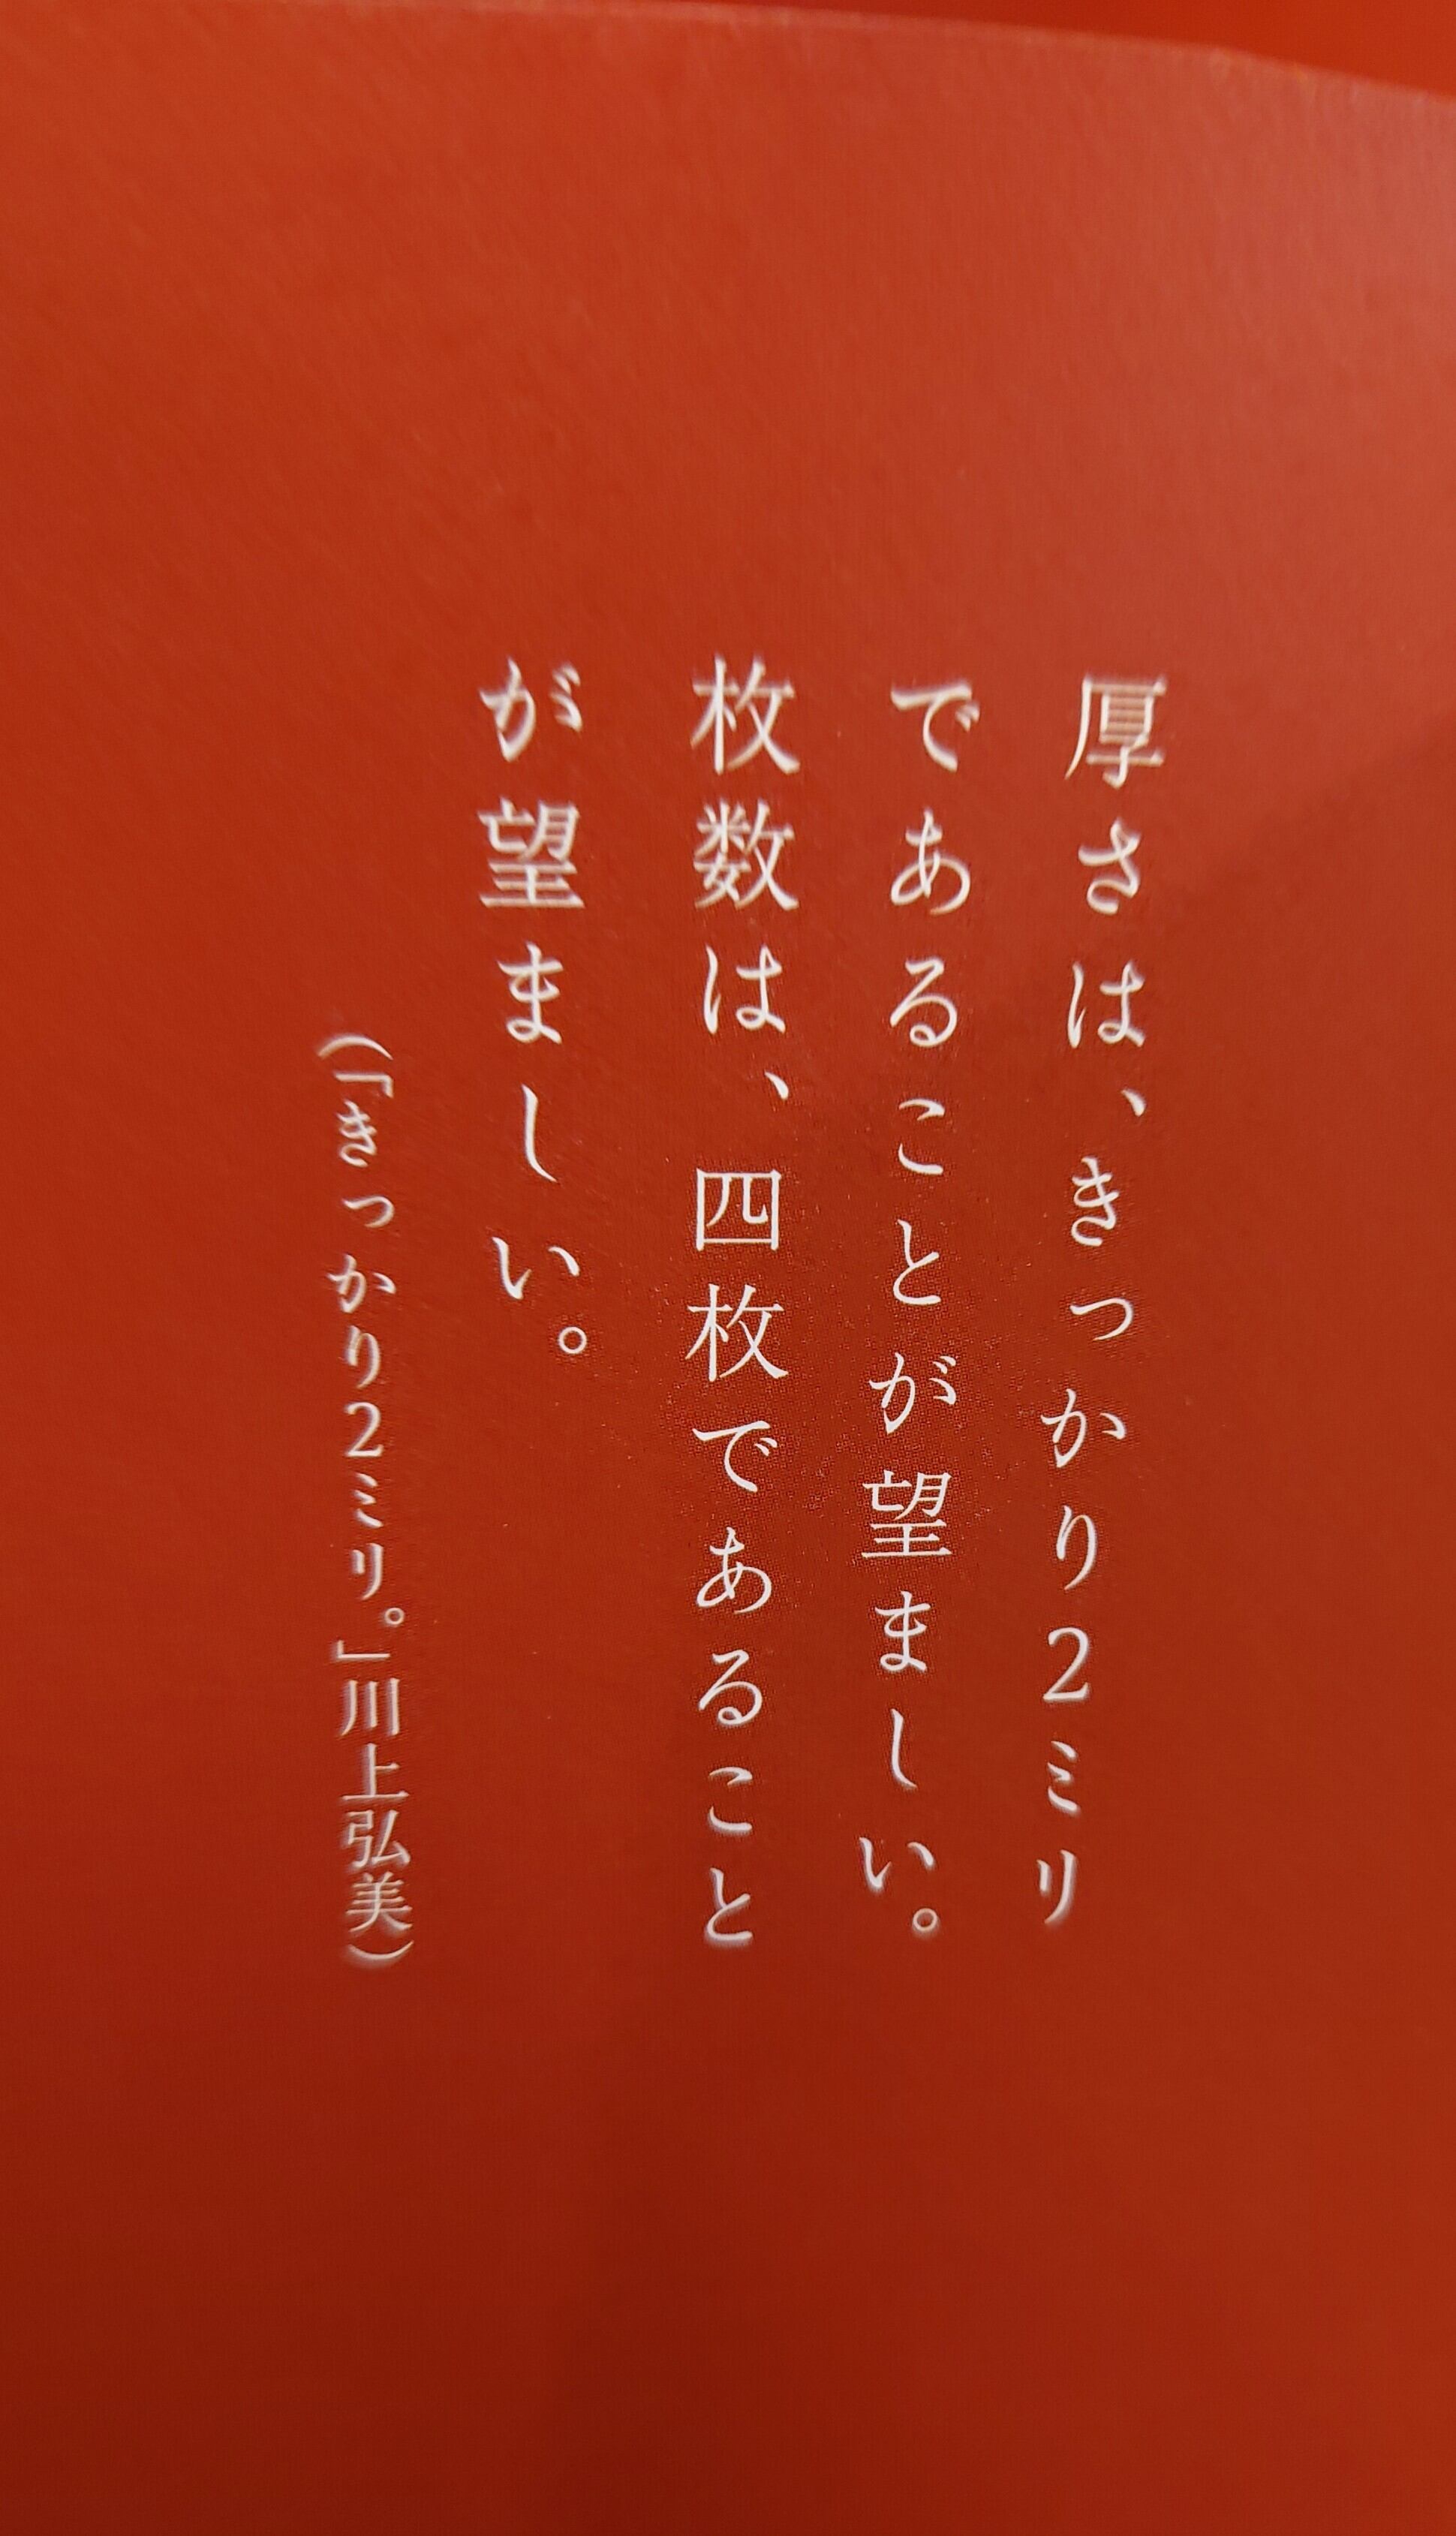 厚さは、きっかり2ミリ
であることが望ましい。
枚数は、四枚であること
が望ましい。
(「きっかり2ミリ。」川上弘美)